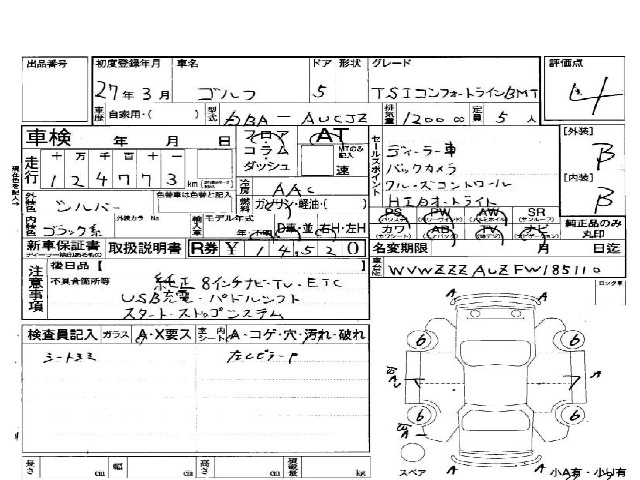 出品番号 初度登録年月 車名 ドア 形状 グレード 評価点
27年3月 ゴルフ 5 TSIコンフォートラインBMT 4
車歴 自家用・( ) 型式 DBA-AUCJZ 排気量 1200 cc 定員 5人
車検 年 月 日 フロア コラム ダッシュ AT MTのみ記入 速
走行 十 万 千 百 十 一
124773 km
セールスポイント
ディーラー車
バックカメラ
クルーズコントロール
HIDオートライト
[外装] B
[内装] B
外装色 シルバー 色替車は色替と記入
冷房 AAC
内装色 ブラック系 外装カラー No
燃料 ガソリン・軽油・( )
輸入車 モデル年式 年 D車・並 右H・左H
PS PW AW SR
(パワステ) (パワーウインド) (サンルーフ)
カワ AB TV ナビ
純正品のみ丸印
新車保証書 取扱説明書 R券 ¥ 14520
名変期限 月 日迄
注意事項
後日品 [ ]
不具合箇所等
純正8インチナビ・TV・ETC
USB充電・パドルシフト
スタート・ストップシステム
車台No. WVWZZZAUZFW185110
ロック車
検査員記入 ガラス A・X要ス 室内シート A・コゲ・穴・汚れ・破れ
シートスミ
6 6
6 6
A A A A A A
スペア
小A有・小U有
長さ cm 幅 cm 高さ cm 積載量 kg